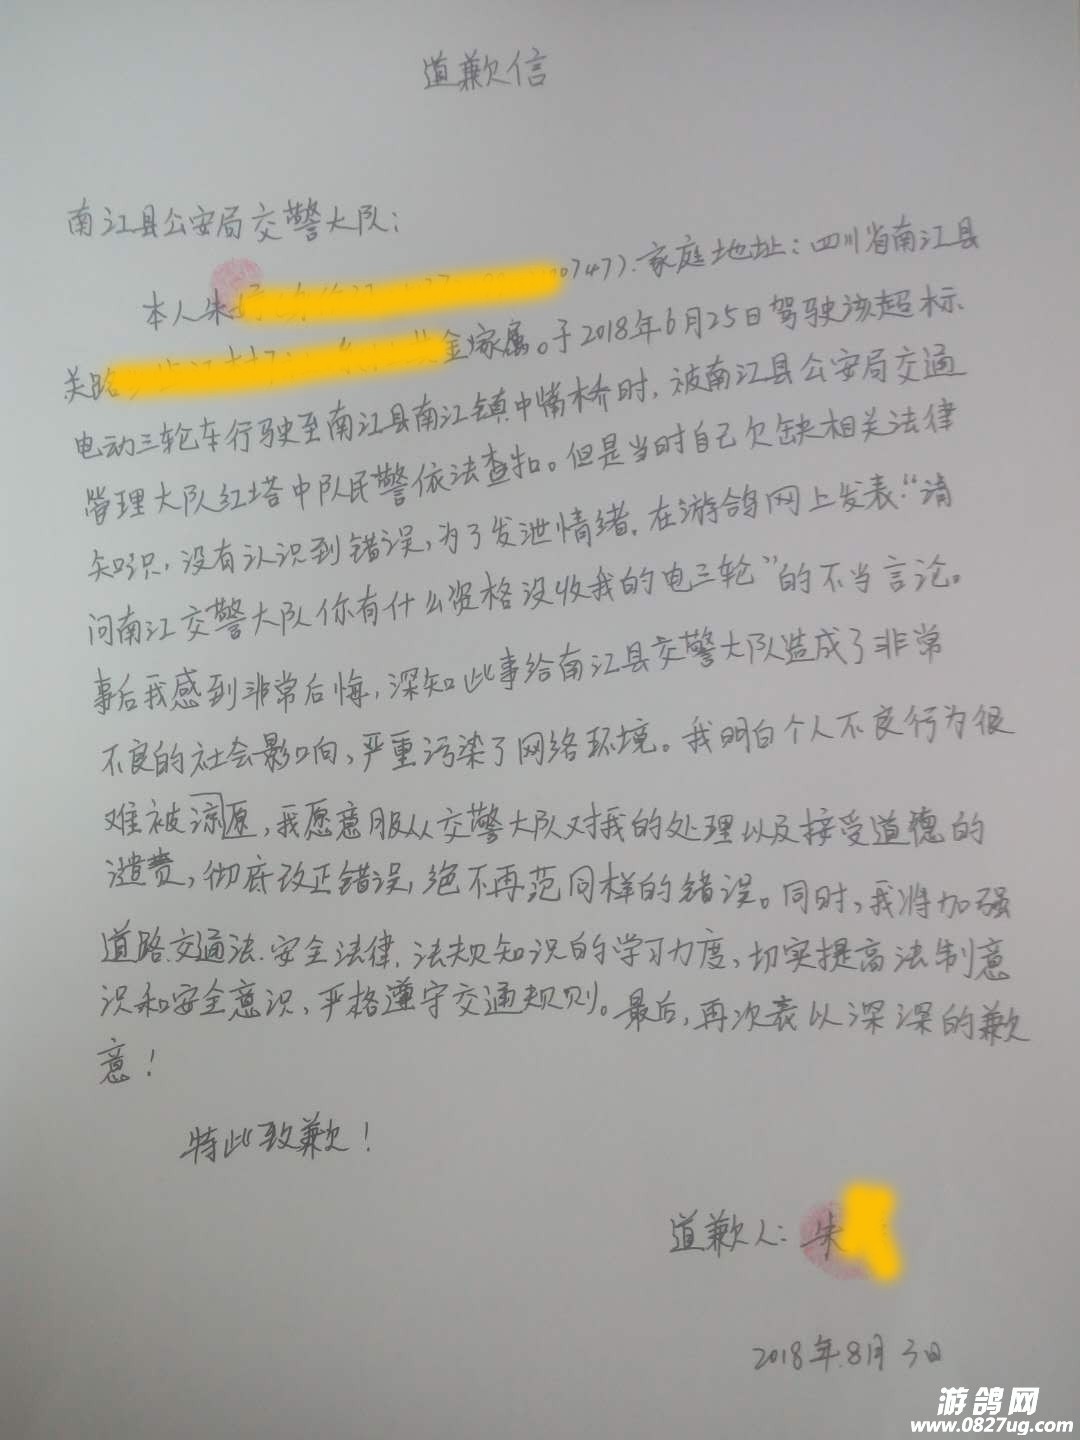 道歉信
南江县公安局交警大队：
本人朱 0747).家庭地址：四川省南江县
关路 金家属。于2018年6月25日驾驶该超标
电动三轮车行驶至南江县南江镇中嘴桥时，被南江县公安局交通
管理大队红塔中队民警依法查扣。但是当时自己欠缺相关法律
知识，没有认识到错误，为了发泄情绪，在游鸽网上发表：“请
问南江交警大队你有什么资格没收我的电三轮”的不当言论。
事后我感到非常后悔，深知此事给南江县交警大队造成了非常
不良的社会影响，严重污染了网络环境。我明白个人不良行为很
难被谅原，我愿意服从交警大队对我的处理以及接受道德的
谴责，彻底改正错误，绝不再范同样的错误。同时，我将加强
道路交通法.安全法律.法规知识的学习力度，切实提高法制意
识和安全意识，严格遵守交通规则。最后，再次表以深深的歉
意！
特此致歉！
道歉人：朱
2018年8月3日
游鸽网
www.0827ug.com